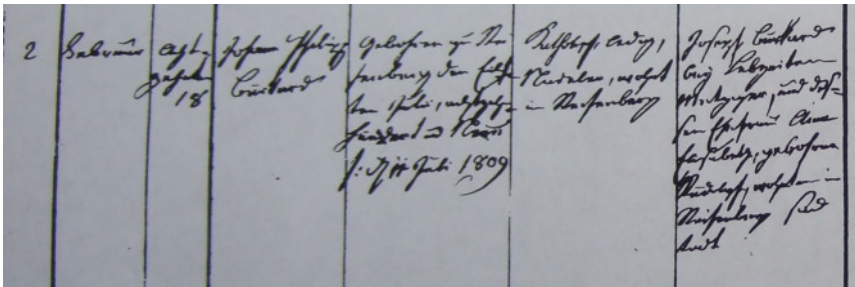 2
Februar
acht-
zehn
18
Johann Philipp
Burkard
Gebohren zu Rei
fenberg den Eilf
ten Juli, achtzehn
hundert u Neun
d 11 Juli 1809
Katholisch, ledig,
wohnt
in Reifenberg
Joseph Burkard
bey Lebzeiten
Metzger, und des-
sen Ehefrau Anna
gebohrne
wohnen in
Reifenberg sind